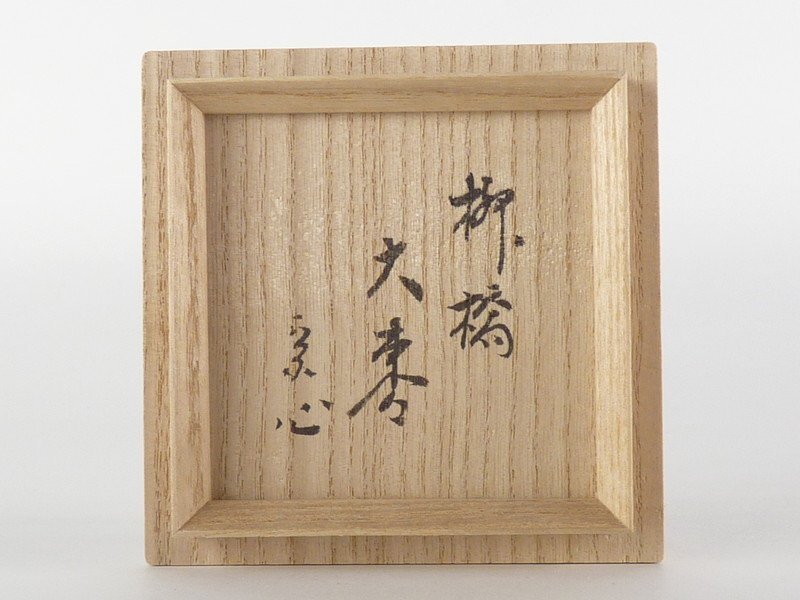 柳橋
大棗
宗心